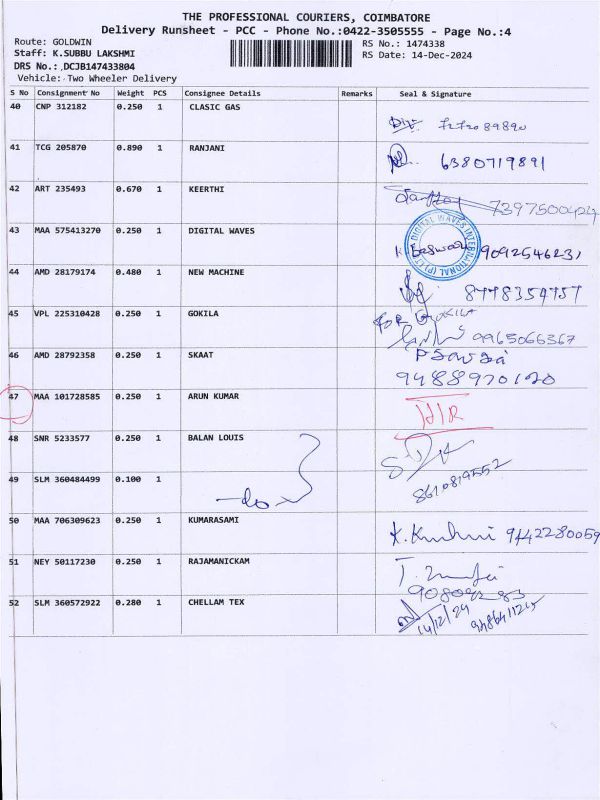 THE PROFESSIONAL COURIERS, COIMBATORE
Delivery Runsheet - PCC - Phone No.:0422-3505555 - Page No.:4
Route: GOLDWIN
Staff: K.SUBBU LAKSHMI
DRS No.: ,DCJB147433804
Vehicle: Two Wheeler Delivery
RS No.: 1474338
RS Date: 14-Dec-2024
S No Consignment No Weight PCS Consignee Details Remarks Seal & Signature
40 CNP 312182 0.250 1 CLASIC GAS
41 TCG 205870 0.890 1 RANJANI 6380719891
42 ART 235493 0.670 1 KEERTHI
43 MAA 575413270 0.250 1 DIGITAL WAVES
DIGITAL WAVES INTERNATIONAL (P) LTD
44 AMD 28179174 0.480 1 NEW MACHINE 8778354757
45 VPL 225310428 0.250 1 GOKILA FOR GOKILA
9965066367
46 AMD 28792358 0.250 1 SKAAT
9488970120
47 MAA 101728585 0.250 1 ARUN KUMAR
48 SNR 5233577 0.250 1 BALAN LOUIS
8610819552
49 SLM 360484499 0.100 1 -do-
50 MAA 706309623 0.250 1 KUMARASAMI 9442280059
51 NEY 50117230 0.250 1 RAJAMANICKAM
52 SLM 360572922 0.280 1 CHELLAM TEX
14/12/24